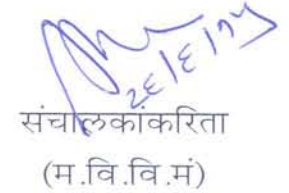 २६/६/१५
संचालकांकरिता
(म.वि.वि.मं)